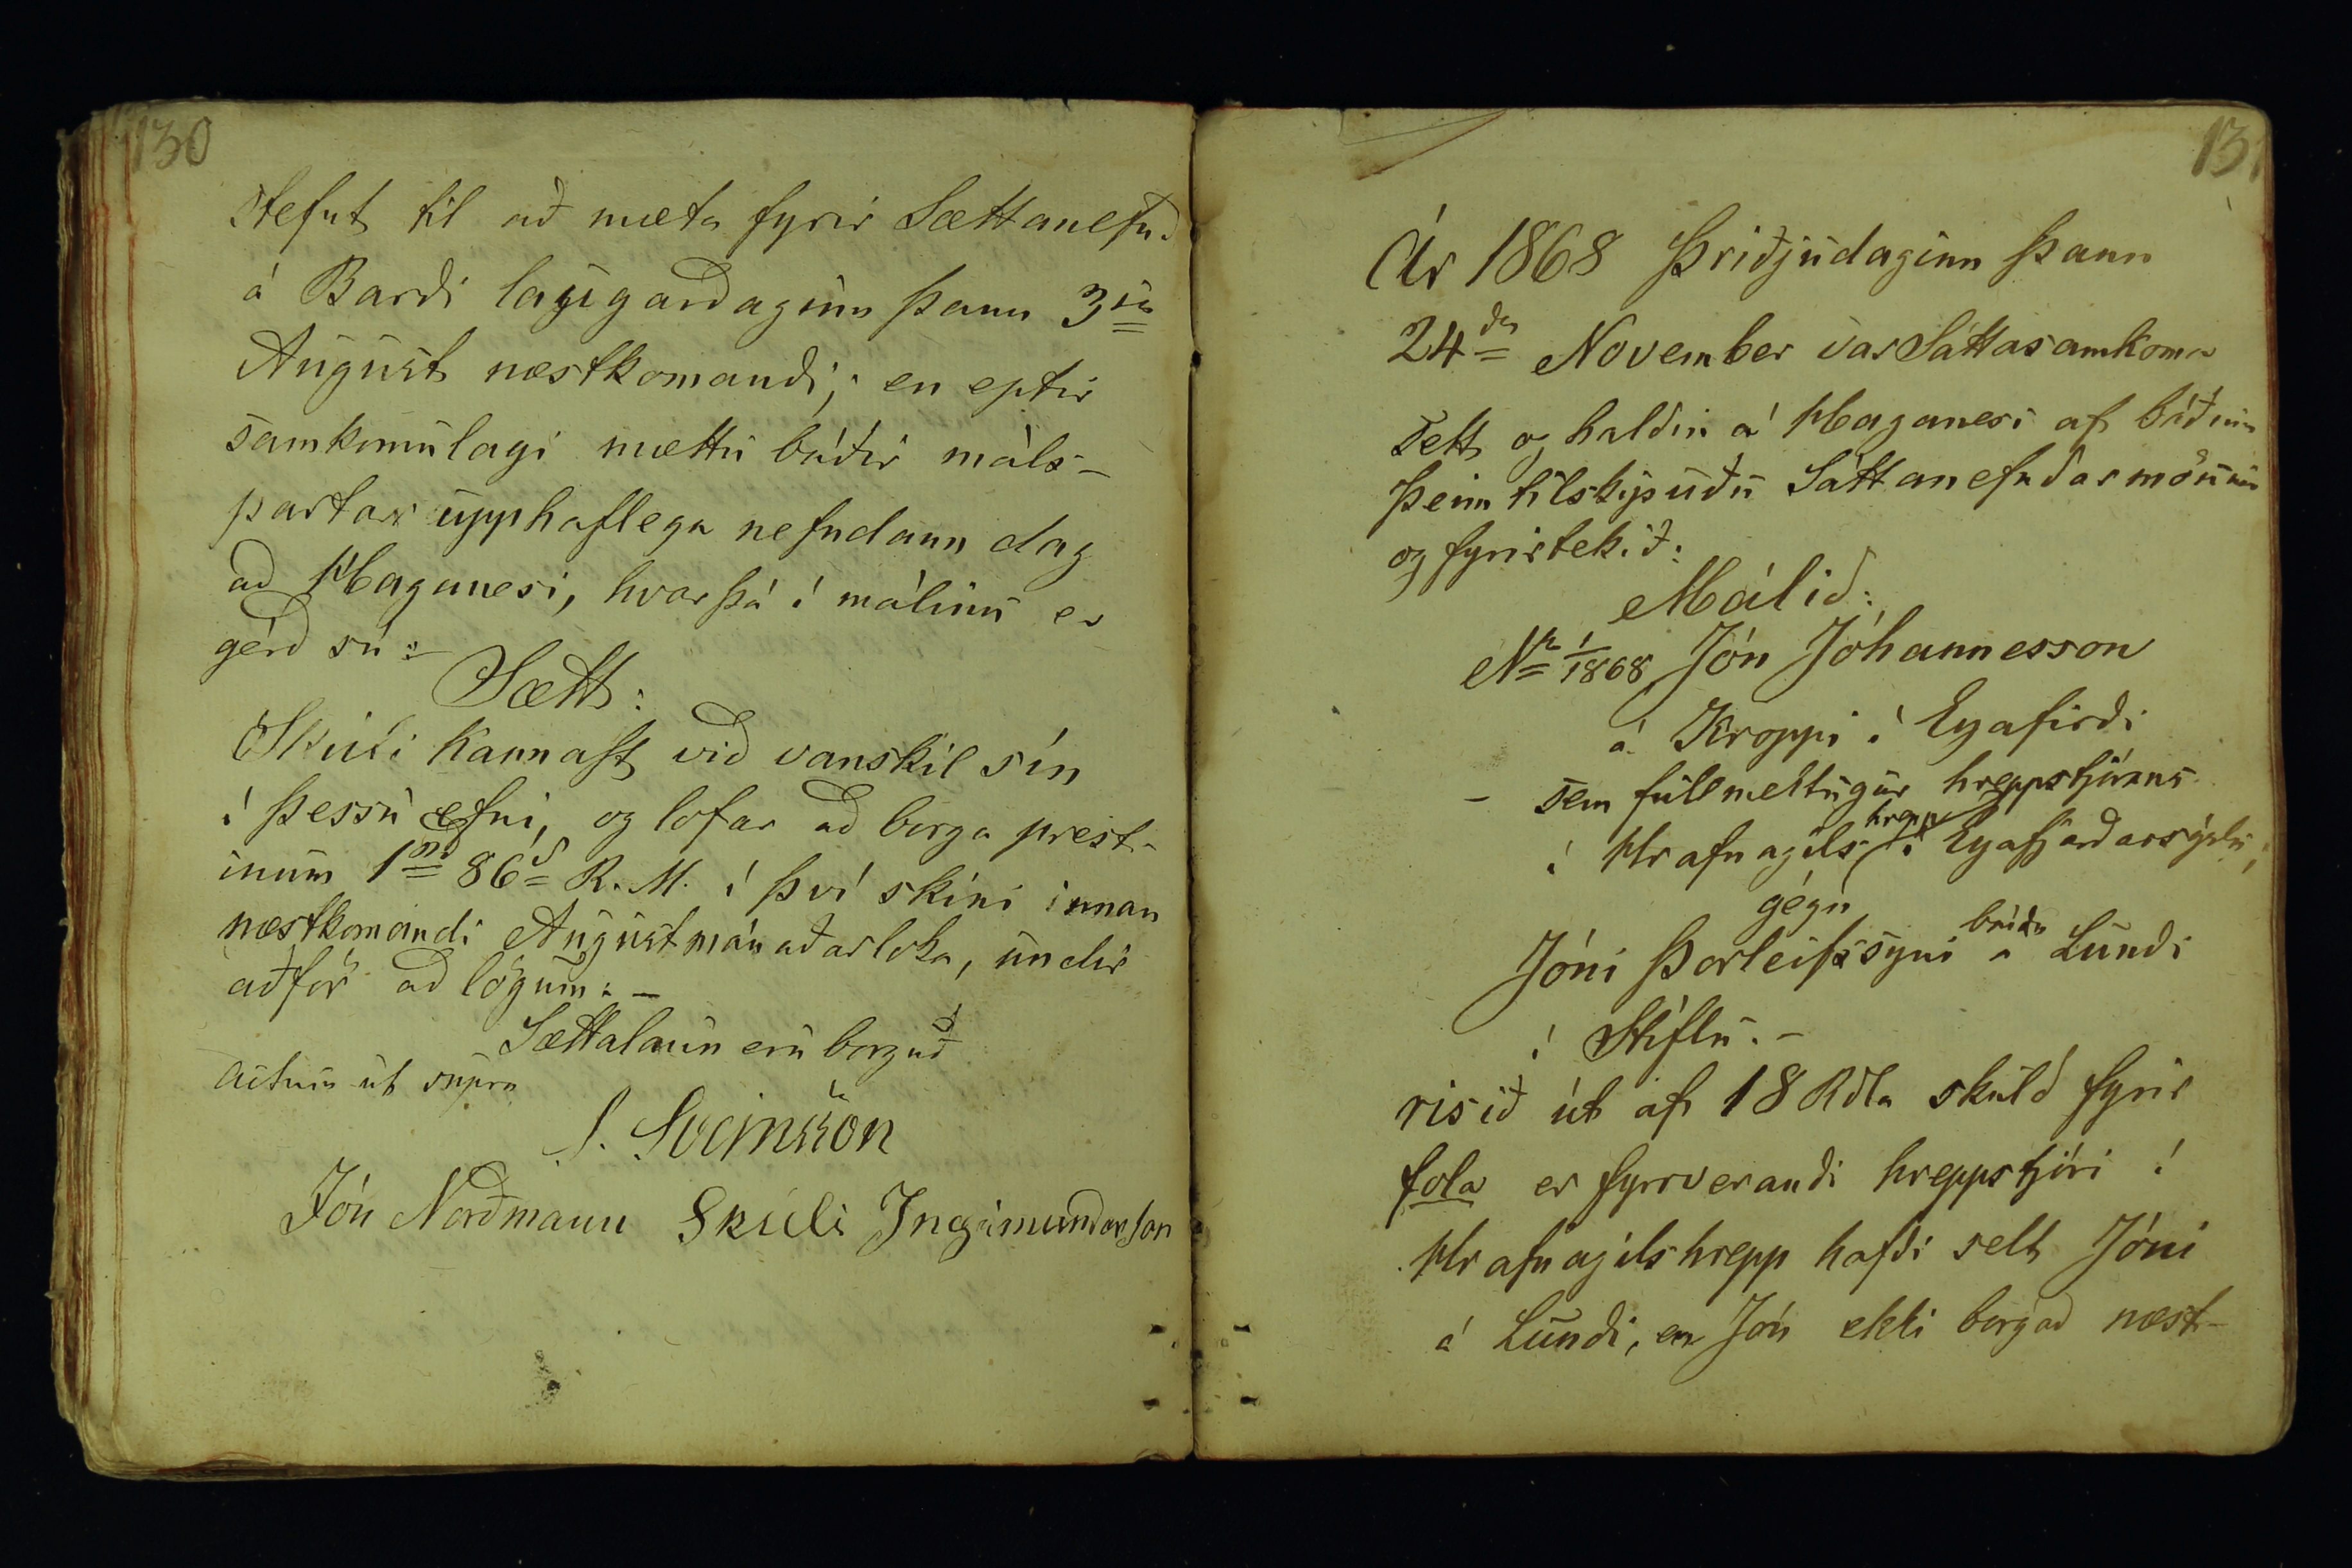 130
stefnt til að mæta fyrir Sættanefnd
á Barði laugardaginn þann 3ia
August næstkomandi; en eptir
samkomulagi mættu báðir máls-
partar upphaflega nefndann dag
að Haganesi, hvar þá í málinu er
gerð sú:-
Sætt:
Skúli kannast við vanskil sín
í þessu efni, og lofar að borga prest-
inum 1rd 86s R. M. í því skini innan
næstkomandi Augustmánaðarloka, undir
aðför að lögum:-
Sættalaun eru borguð
actum ut supra
S. Sveinsson
Jón Norðmann Skúli Ingimundarson
131
Ár 1868 Þriðjudaginn þann
24da November var Sáttasamkoma
sett og haldin á Haganesi af báðum
þeim tilskipuðu Sáttanefndarmönnum
og fyrirtekið:
Málið:
Nr 1/1868 Jón Jóhannesson
á Kroppi í Eyafirði
- sem fullmektugur hreppstjórans
í Hrafnagils hrepp í Eyafjarðarsýslu;
gégn
Jóni Þorleifssyni bónda á Lundi
í Stíflu.-
risið út af 18 Rdla skuld fyrir
fola er fyrrverandi hreppstjóri í
Hrafnagilshrepp hafði selt Jóni
á Lundi, en Jón ekki borgað næst-